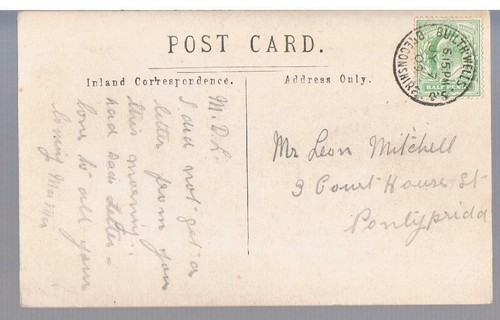 POST CARD.
Inland Correspondence.
Address Only.
BUILTH WELLS
6.15 PM
09
BRECONSHIRE
HALF PENNY
M.D.L.
I did not get a
letter from you
this morning.
had Dads Letter
love to all from
loving
Mr Leon Mitchell
3 Court House St
Pontypridd